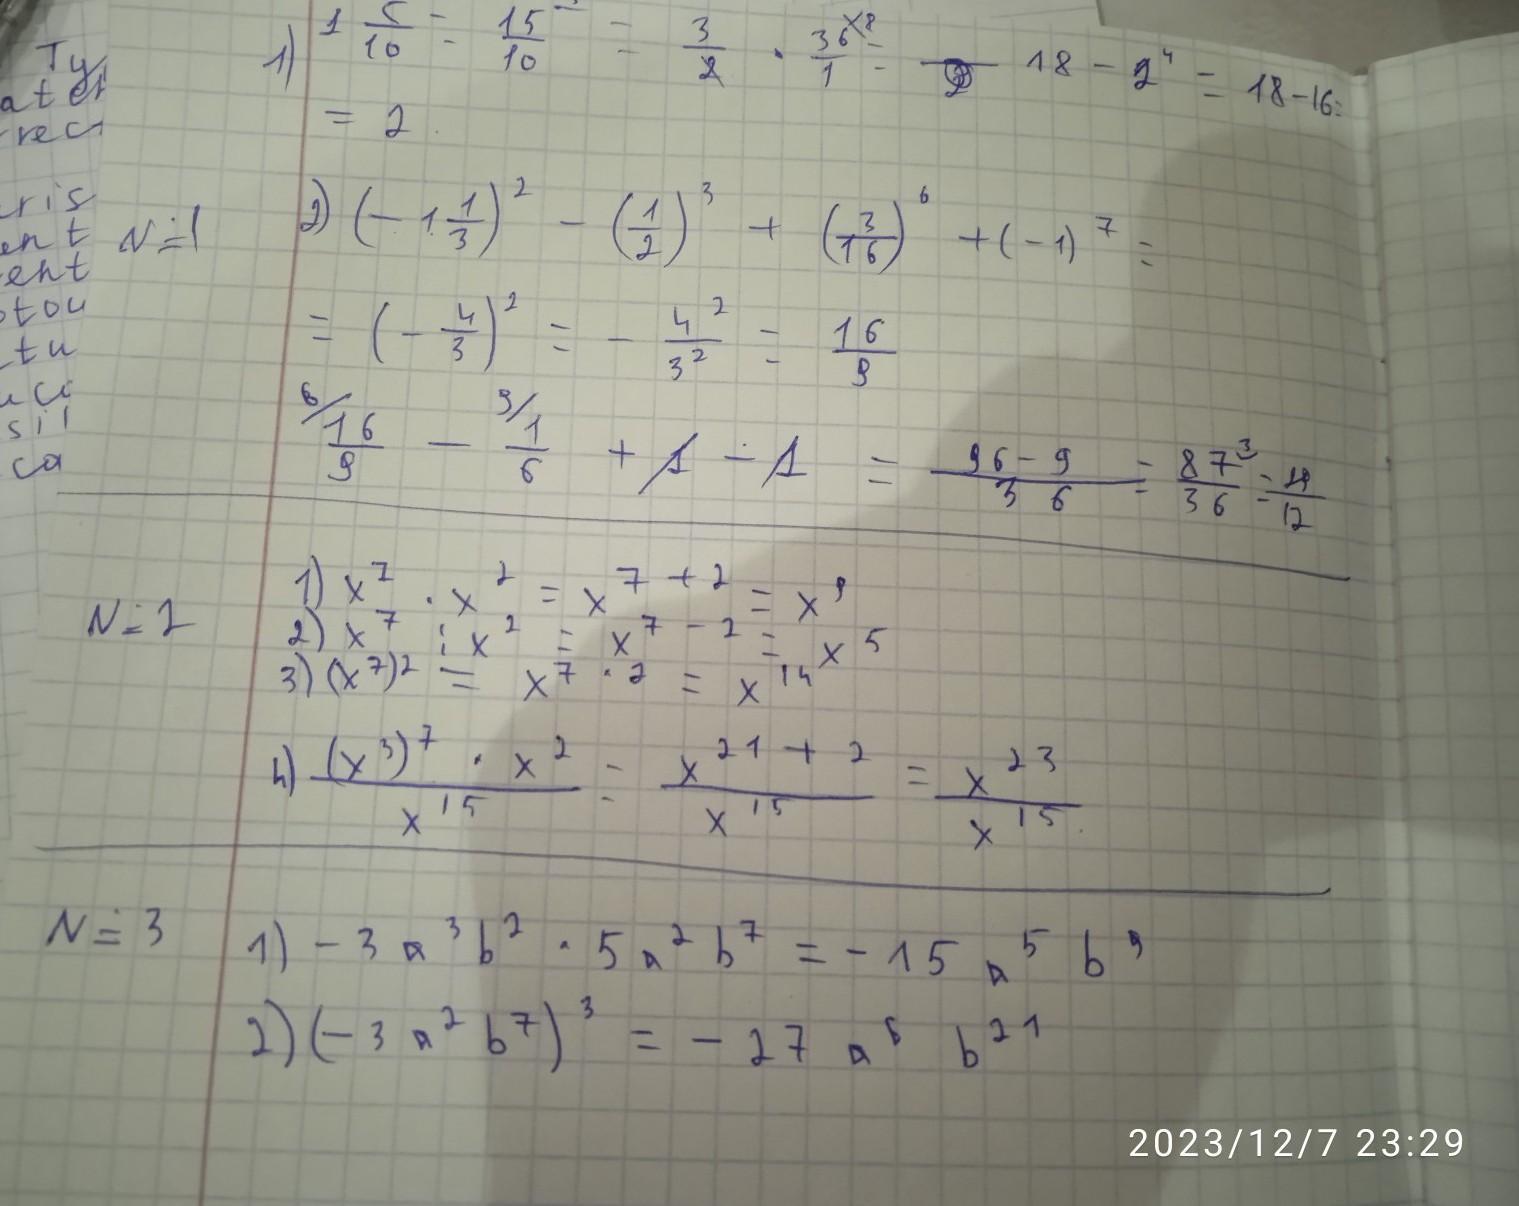 Ty
1) 1 5/10 = 15/10 = 3/2 · 36/1 = 18 - 2⁴ = 18-16=
= 2
N=1 2) (-1 1/3)² - (1/2)³ + (3/16)⁶ + (-1)⁷ =
= (-4/3)² = - 4²/3² = 16/9
6/ 16/9 - 9/ 1/6 + 1 - 1 = 96-9/36 = 87³/36 = /12
N=2
1) x⁷ · x² = x⁷⁺² = x⁹
2) x⁷ : x² = x⁷⁻² = x⁵
3) (x⁷)² = x⁷·² = x¹⁴
4) (x³)⁷ · x²/x¹⁵ = x²¹⁺²/x¹⁵ = x²³/x¹⁵
N=3 1) -3a³b² · 5a²b⁷ = -15a⁵b⁹
2) (-3a²b⁷)³ = -27a⁶ b²¹
2023/12/7 23:29